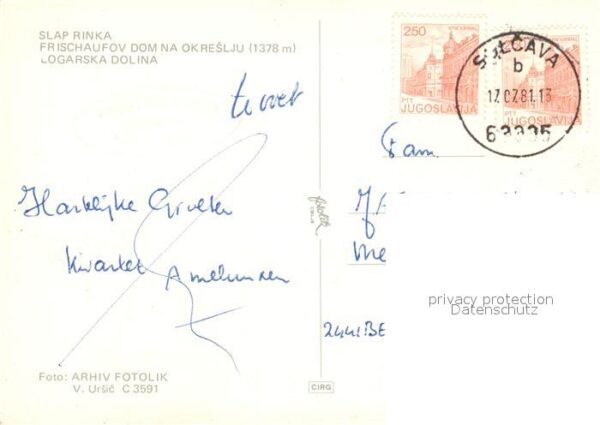 SLAP RINKA
FRISCHAUFOV DOM NA OKREŠLJU (1378 m)
LOGARSKA DOLINA
Hartelijke Groeten
Kwartet Amelunxen
Foto: ARHIV FOTOLIK
V. Uršič C 3591
fotolik
CELJE
CIRG
2.50
PTT
JUGOSLAVIJA
PTT
JUGOSLAVIJA
SOLČAVA
b
17.07.81.13
Fam.
2441BE
privacy protection
Datenschutz